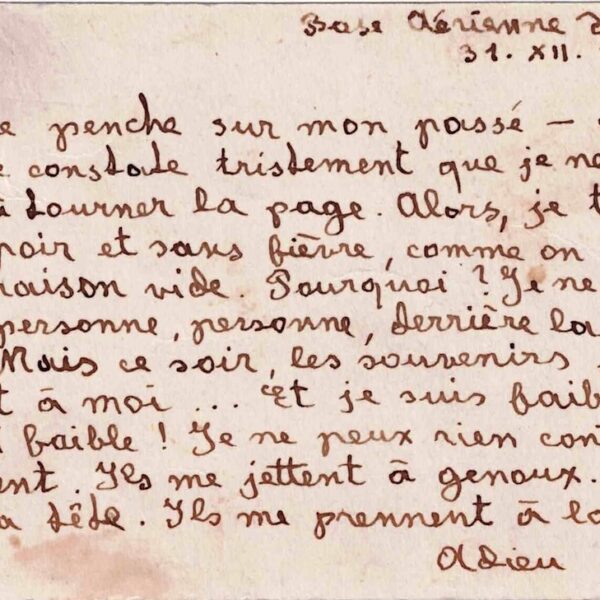 Base Aérienne d
31. XII.
e penche sur mon passé —
e constate tristement que je ne
à tourner la page. Alors, je t
poir et sans fièvre, comme on
maison vide. Pourquoi ? Je ne
personne, personne, derrière la
Mais ce soir, les souvenirs
t à moi ... Et je suis faib
faible ! Je ne peux rien con
ent. Ils me jettent à genoux.
a tête. Ils me prennent à la
Adieu